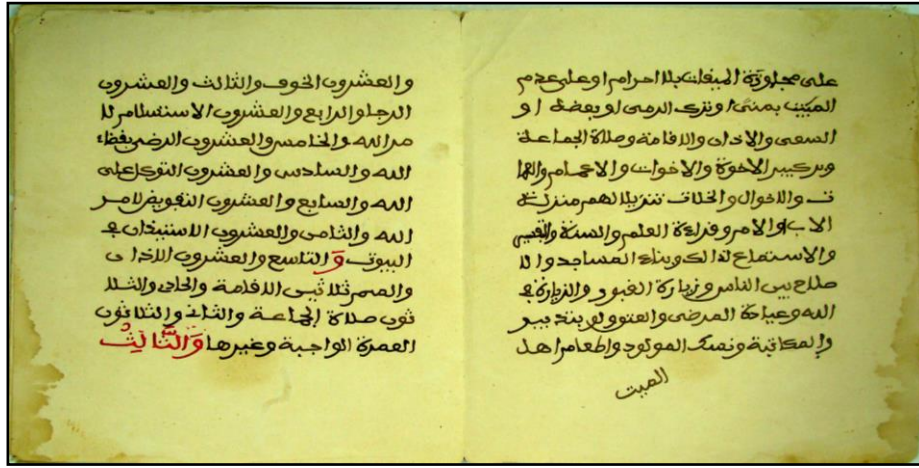 على مجاوزة الميقات بلا احرام او على عدم
المبيت بمنى او ترك الرمي او بعضه او
السعي والاذان والاقامة وصلاة الجماعة
وبر كبير الاخوة والاخوات والاعمام والعما
ت والاخوال والخلات تنزيلا لهم منزلة
الاب والام وقراءة العلم والسنة والتفسير
والاستماع لذالك وبناء المساجد والا
صلاح بين الناس وزيارة القبور والزيارة في
الله وعيادة المرضى والعتق ولو بتدبير
والمكاتبة ونسك المولود واطعام اهل
الميت
والعشرون الخوف والثالث والعشرون
الرجا والرابع والعشرون الاستسلام لا
مر الله والخامس والعشرون الرضى بقضاء
الله والسادس والعشرون التوكل على
الله والسابع والعشرون التفويض لامر
الله والثامن والعشرون الاستيذان في
البيوت والتاسع والعشرون الاذان
والصم ثلاثين الاقامة والحادي والثلا
ثون صلاة الجماعة والثاني والثلاثون
العمرة الواجبة وغيرها وَالثَّالِثُ